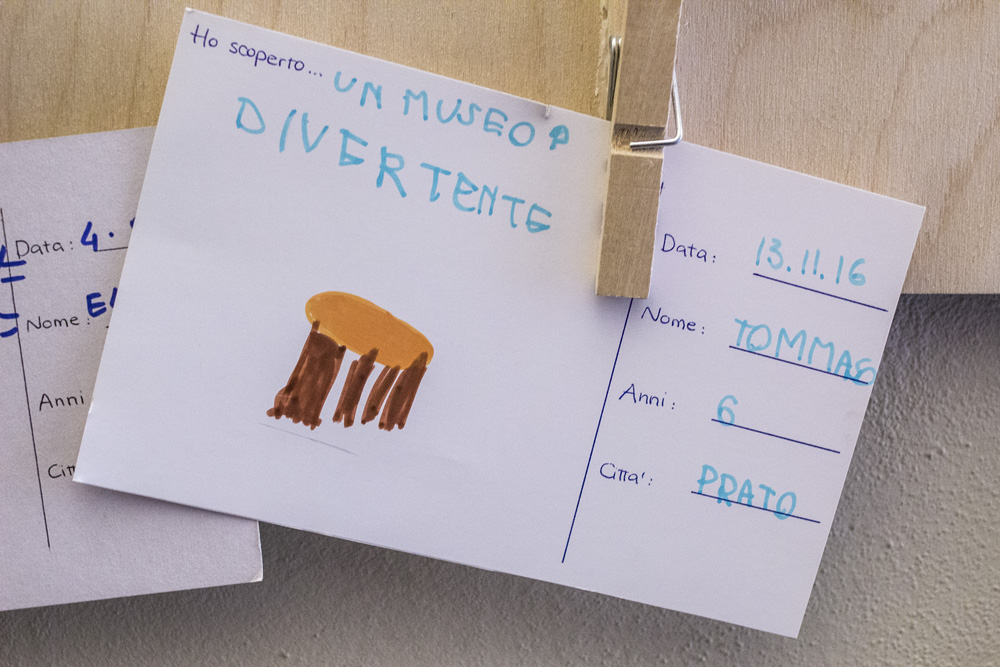 Ho scoperto... UN MUSEO P
DIVERTENTE
Data: 13.11.16
Nome: TOMMASO
Anni: 6
Citta': PRATO
Data: 4.
Nome:
Anni